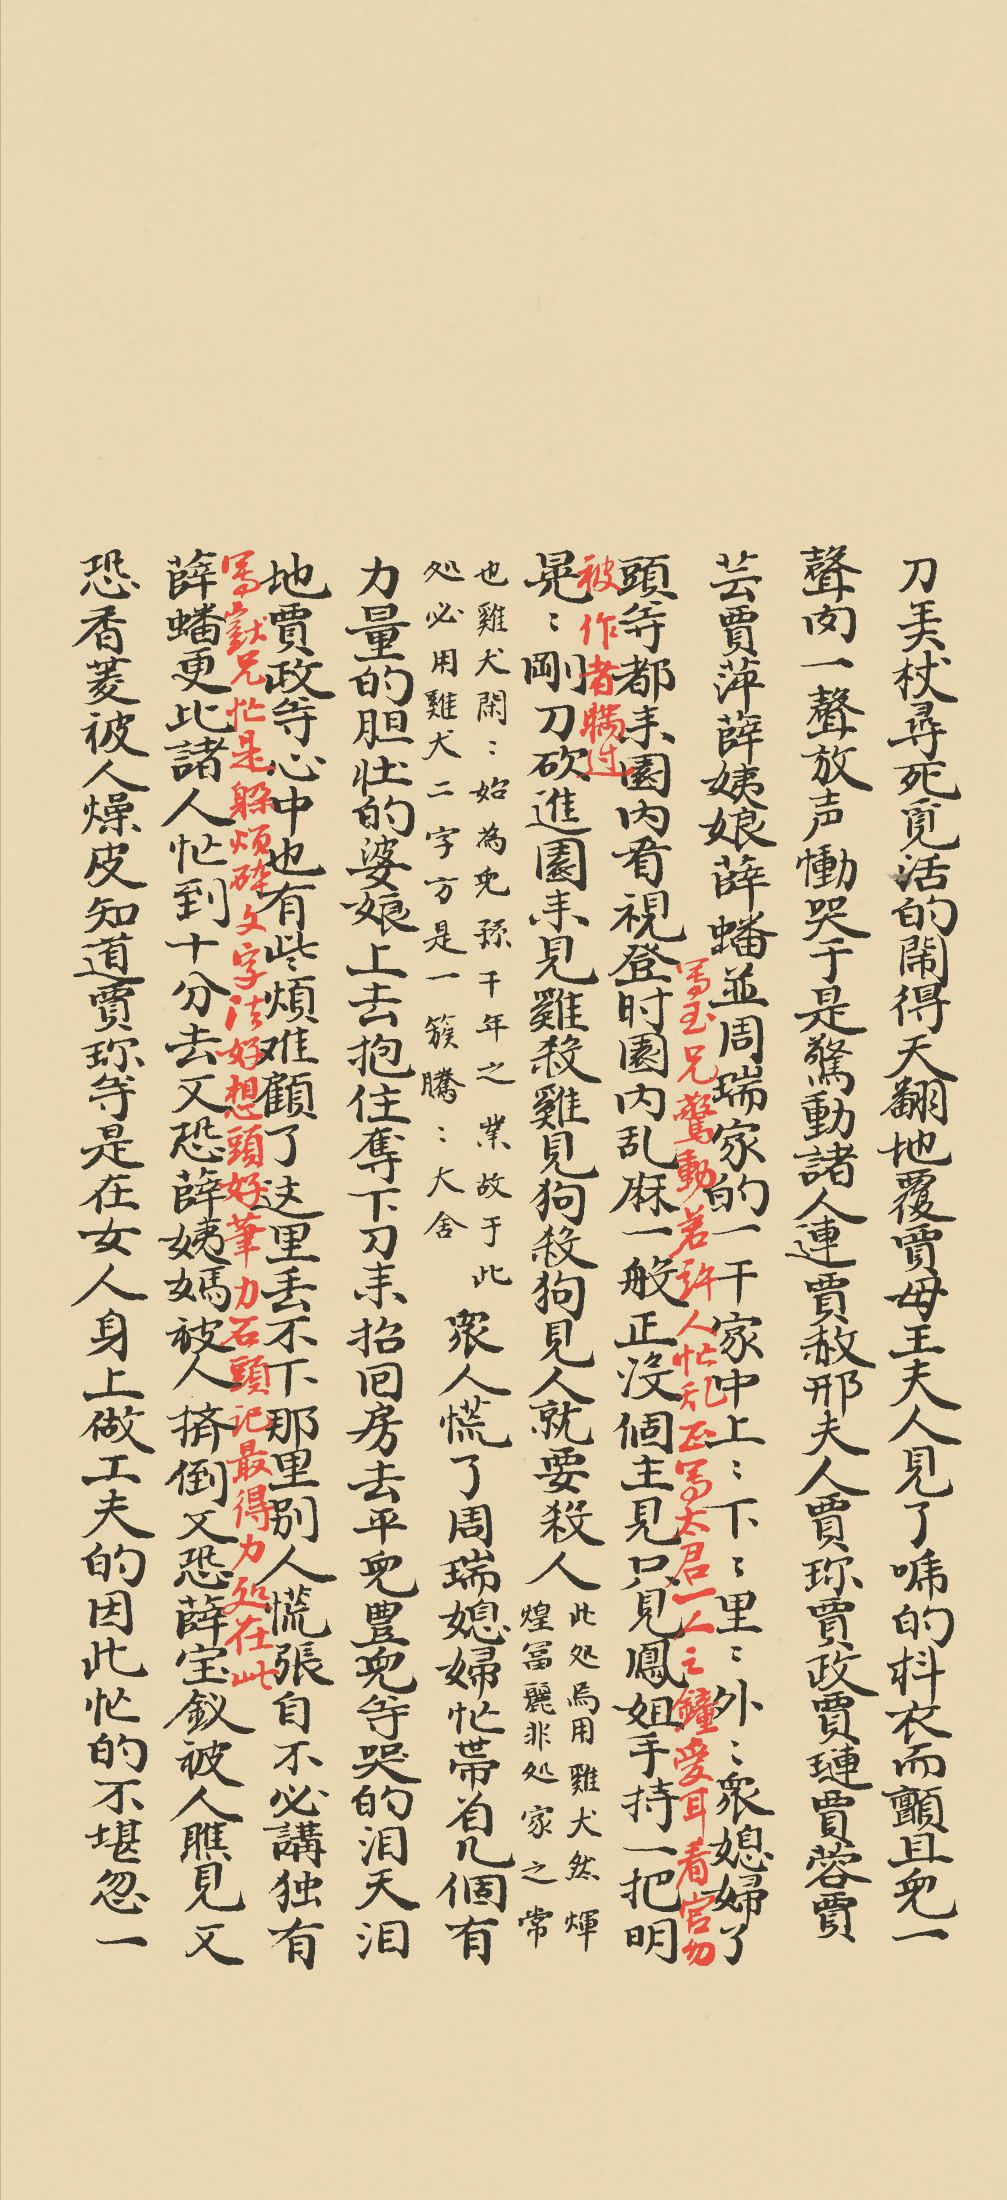 刀弄杖尋死覓活的鬧得天翻地覆賈母王夫人見了唬的抖衣而顫且兒一
聲肉一聲放声慟哭于是驚動諸人連賈赦邢夫人賈珎賈政賈璉賈蓉賈
芸賈萍薛姨娘薛蟠並周瑞家的一干家中上〻下〻里〻外〻衆媳婦了
寫玉兄驚動若許人忙乱正寫太君一人之鐘愛耳看官勿
頭等都来園内看視登时園内乱麻一般正沒個主見只見鳳姐手持一把明
被作者瞞过
晃〻剛刀砍進園来見雞殺雞見狗殺狗見人就要殺人
此处焉用雞犬然煇
煌冨麗非处家之常
也雞犬閑〻始為兒孫千年之業故于此
处必用雞犬二字方是一簇騰〻大舍
衆人慌了周瑞媳婦忙帶着几個有
力量的胆壮的婆娘上去抱住奪下刀来抬回房去平兒豊兒等哭的泪天泪
地賈政等心中也有些煩难顧了这里丢不下那里别人慌張自不必講独有
寫獃兄忙是躲煩碎文字法好想頭好筆力石頭记最得力处在此
薛蟠更比諸人忙到十分去又恐薛姨媽被人擠倒又恐薛宝釵被人瞧見又
恐香菱被人燥皮知道賈珎等是在女人身上做工夫的因此忙的不堪忽一